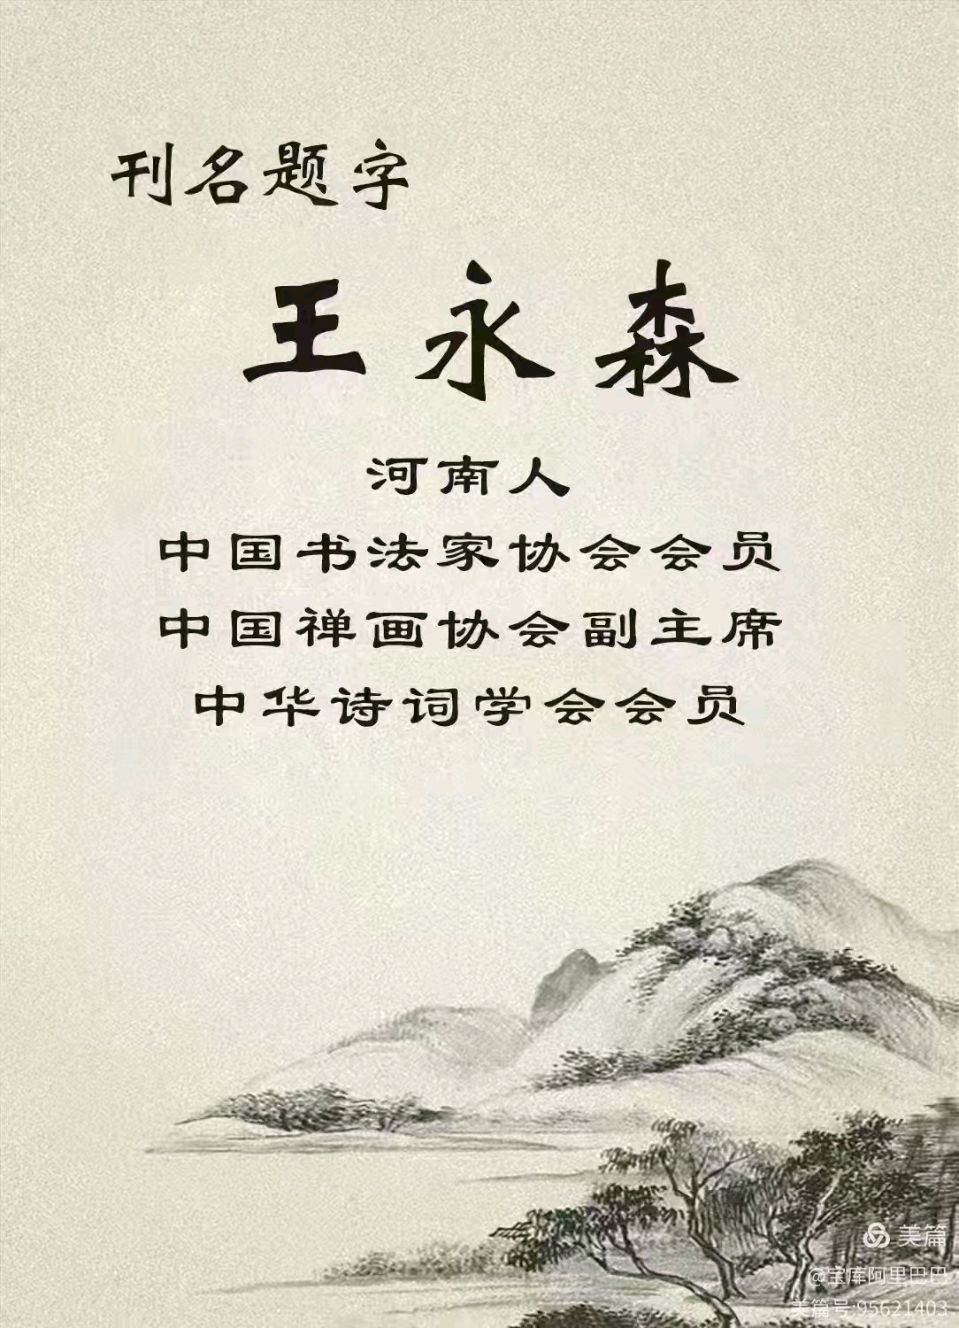 刊名题字
王永森
河南人
中国书法家协会会员
中国禅画协会副主席
中华诗词学会会员
美篇
@宝库阿里巴巴
美篇号:95621403